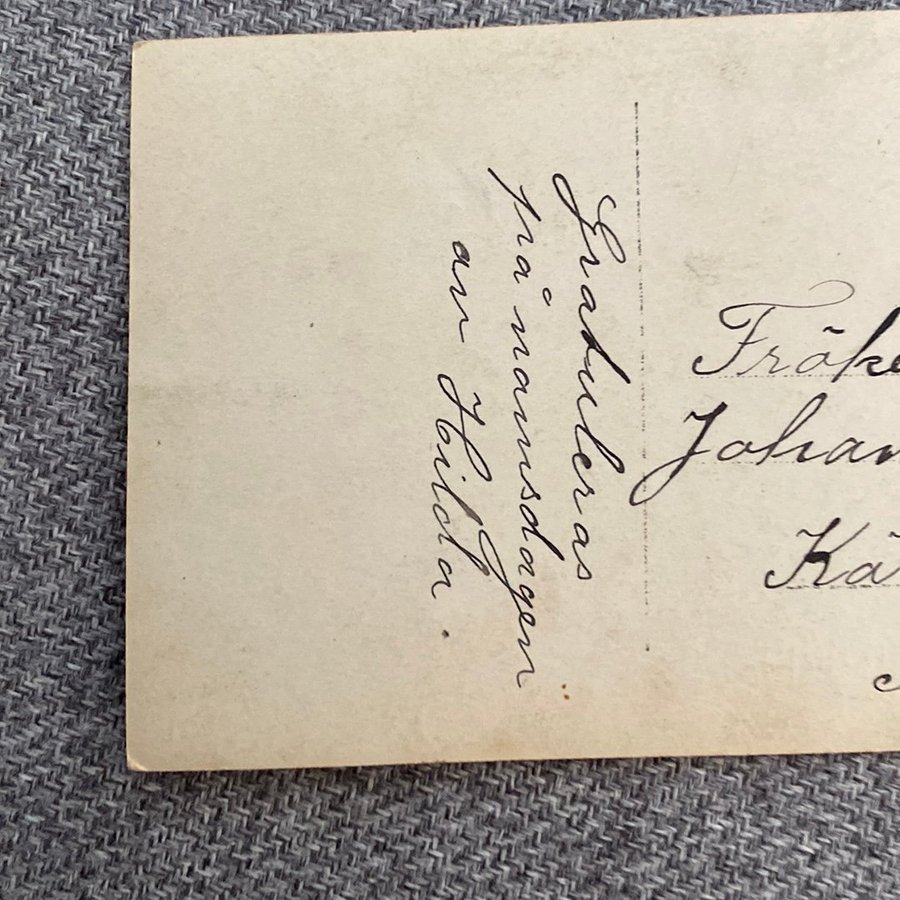 Gratuleras
på namnsdagen
av Hilda.
Fröke
Johan
Kä